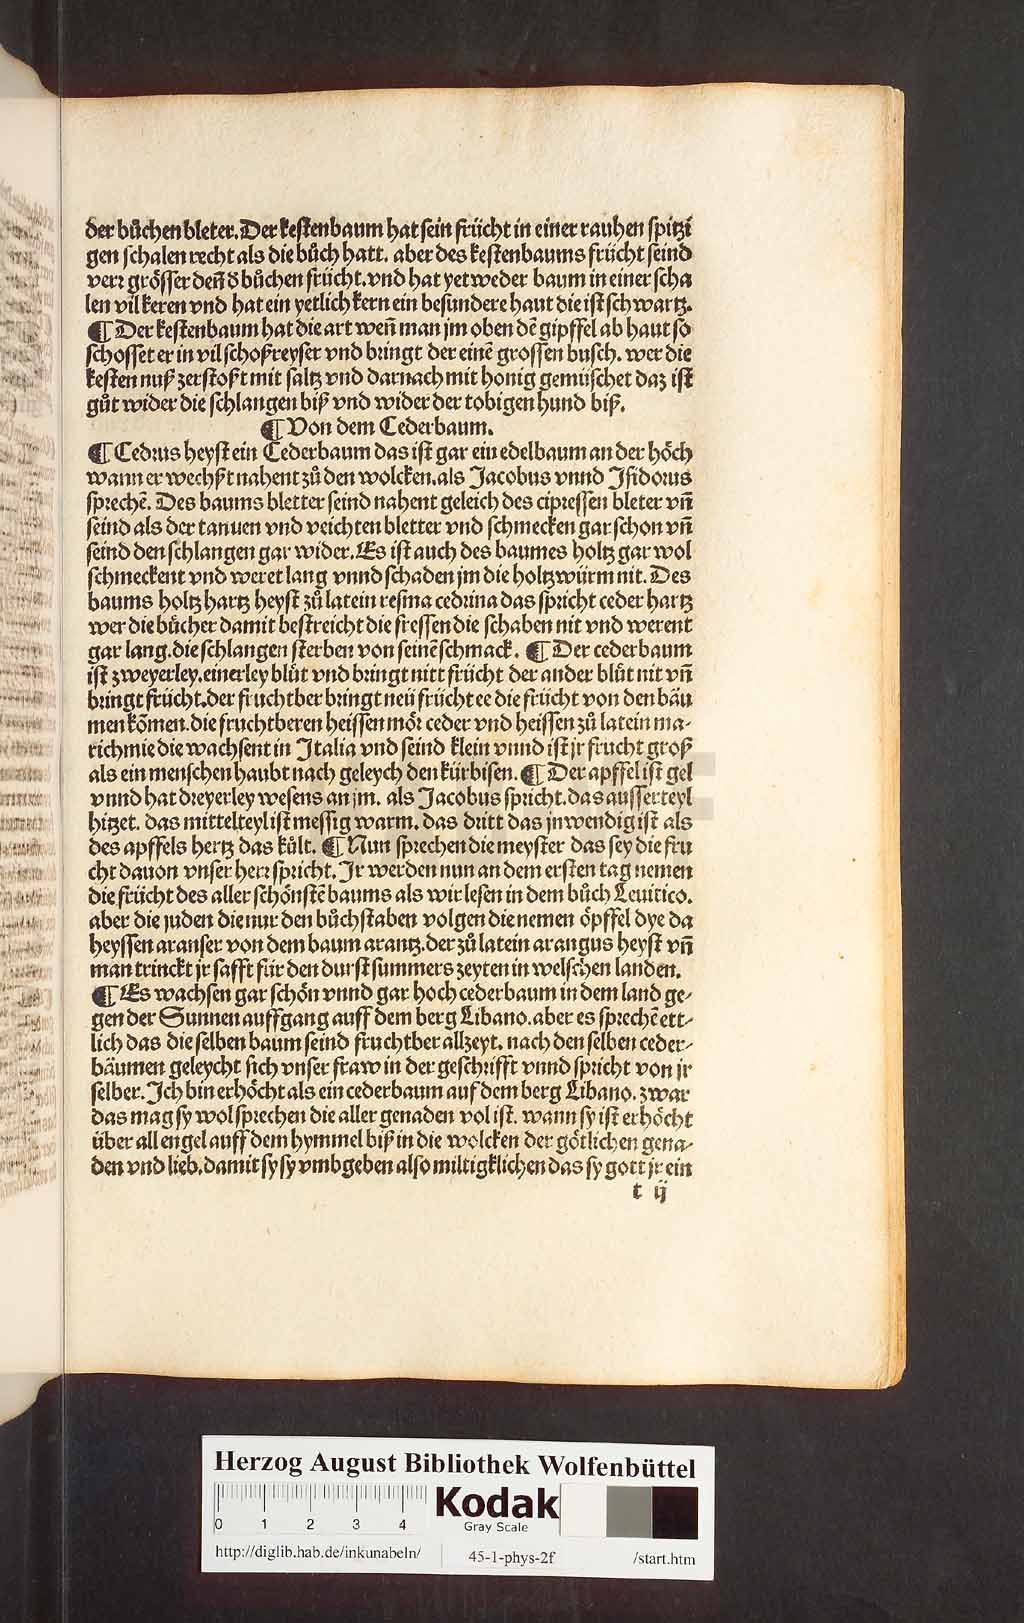 der bůchen bleter. Der kestenbaum hat sein frücht in einer rauhen spitzi
gen schalen recht als die bůch hatt. aber des kestenbaums frücht seind
verr grösser deñ d bůchen frücht. vnd hat yetweder baum in einer scha
len vil keren vnd hat ein yetlich kern ein besundere haut die ist schwartz.
¶ Der kestenbaum hat die art weñ man jm oben dē gipffel ab haut so
schosset er in vil schoßreyser vnd bringt der einē grossen busch. wer die
kesten nuß zerstoßt mit saltz vnd darnach mit honig gemüschet daz ist
gůt wider die schlangen biß vnd wider der tobigen hund biß.
¶ Von dem Cederbaum.
¶ Cedrus heyst ein Cederbaum das ist gar ein edel baum an der höch
wann er wechßt nahent zů den wolcken. als Jacobus vnnd Isidorus
sprechē. Des baums bletter seind nahent geleich des cipressen bleter vñ
seind als der tannen vnd veichten bletter vnd schmecken gar schon vñ
seind den schlangen gar wider. Es ist auch des baumes holtz gar wol
schmeckent vnd weret lang vnnd schaden jm die holtzwürm nit. Des
baums holtz hartz heyst zů latein resina cedrina das spricht ceder hartz
wer die bůcher damit bestreicht die fressen die schaben nit vnd werent
gar lang. die schlangen sterben von seinē schmack. ¶ Der cederbaum
ist zweyerley. einerley blůt vnd bringt nitt frücht der ander blůt nit vñ
bringt frücht. der fruchtber bringt neü frücht ee die frücht von den bäu
men kōmen. die fruchtberen heissen mör ceder vnd heissen zů latein ma-
richmie die wachsent in Italia vnd seind klein vnnd ist jr frucht groß
als ein menschen haubt nach geleych den kürbisen. ¶ Der apffel ist gel
vnnd hat dreyerley wesens an jm. als Jacobus spricht. das ausser teyl
hitzet. das mittel teyl ist messig warm. das dritt das jnwendig ist als
des apffels hertz das kůlt. ¶ Nun sprechen die meyster das sey die fru
cht dauon vnser herr spricht. Ir werden nun an dem ersten tag nemen
die frücht des aller schönstē baums als wir lesen in dem bůch Leuitico.
aber die juden die nur den bůchstaben volgen die nemen öpffel dye da
heyssen aranser von dem baum arantz. der zů latein arangus heyst vñ
man trinckt jr safft für den durst summers zeyten in welschen landen.
¶ Es wachsen gar schön vnnd gar hoch cederbaum in dem land ge-
gen der Sunnen auffgang auff dem berg Libano. aber es sprechē ett-
lich das die selben baum seind fruchtber allzeyt. nach den selben ceder-
bäumen geleycht sich vnser fraw in der geschrifft vnnd spricht von jr
selber. Ich bin erhöcht als ein cederbaum auf dem berg Libano. zwar
das mag sy wol sprechen die aller genaden vol ist. wann sy ist erhöcht
über all engel auff dem hymmel biß in die wolcken der götlichen gena-
den vnd lieb. damit sy sy vmbgeben also miltigklichen das sy gott jr ein
t ij
Herzog August Bibliothek Wolfenbüttel
0 1 2 3 4
Kodak
Gray Scale
http://diglib.hab.de/inkunabeln/ 45-1-phys-2f /start.htm